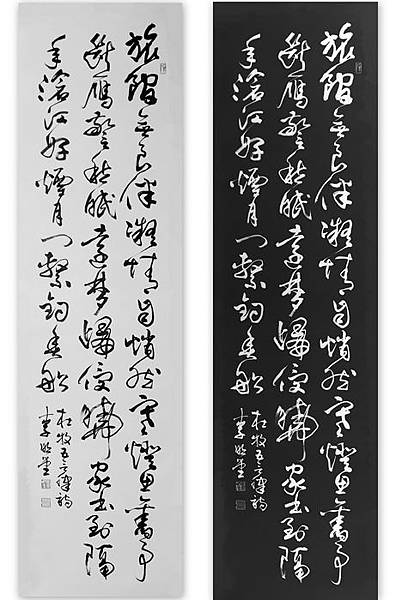 旅館無良伴凝情自悄然寒燈思舊事
斷雁警愁眠遠夢歸侵曉家書到隔
年滄江好煙月門繫釣魚船
杜牧五言律詩
李
旅館無良伴凝情自悄然寒燈思舊事
斷雁警愁眠遠夢歸侵曉家書到隔
年滄江好煙月門繫釣魚船
杜牧五言律詩
李